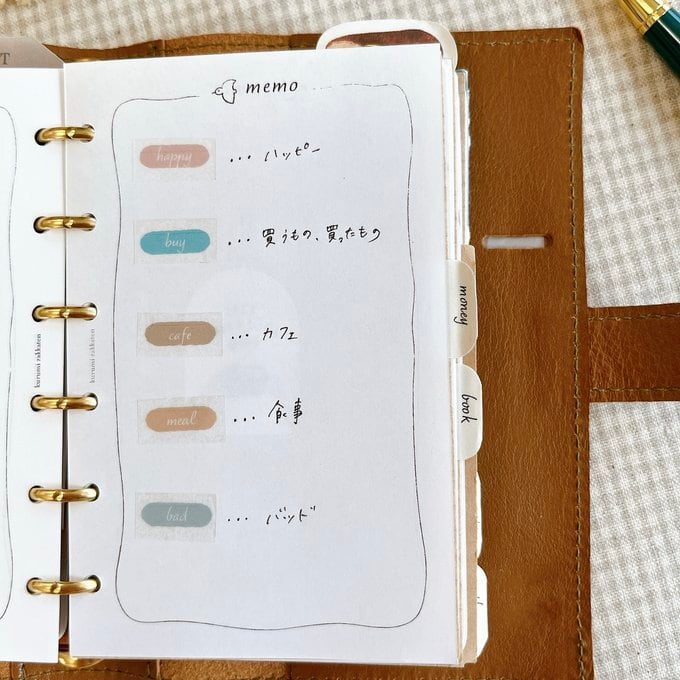 T
memo
happy ... ハッピー
buy ... 買うもの、買ったもの
cafe ... カフェ
meal ... 食事
bad ... バッド
money
book
kurumi rakkaten
kurumi rakkaten